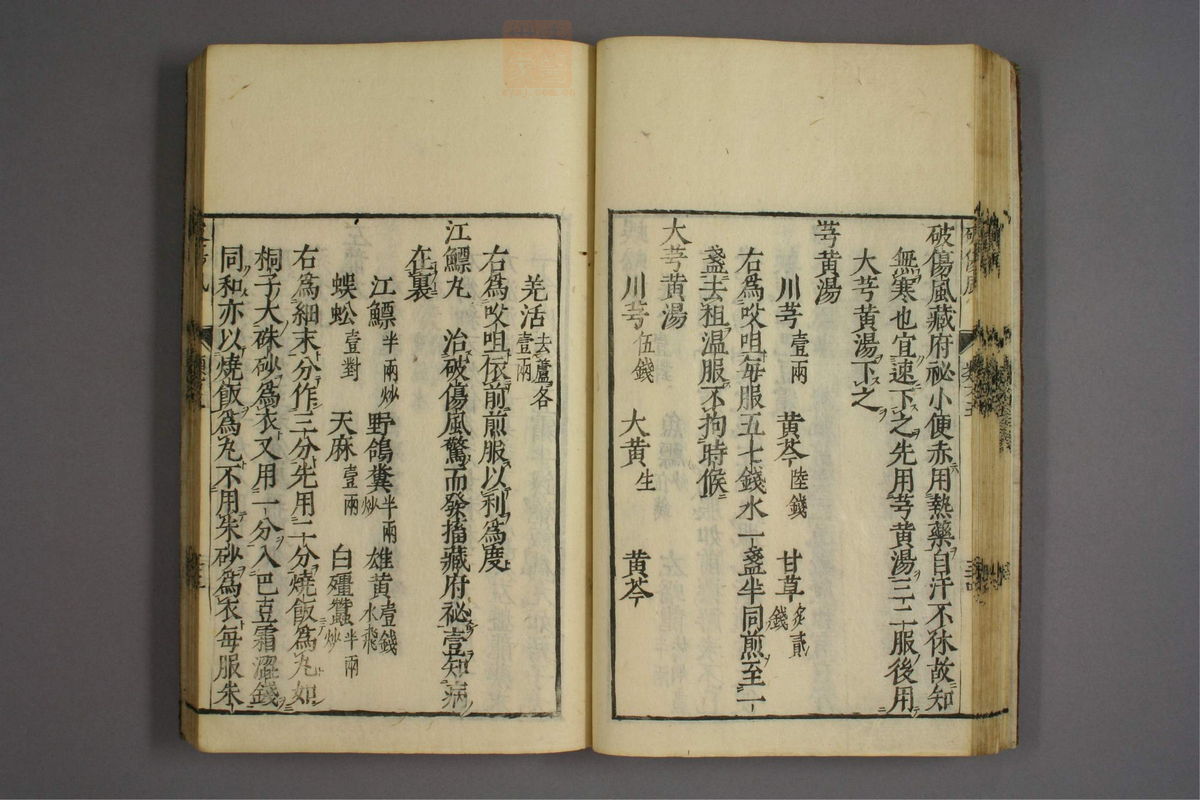 破傷風藏府祕小便赤用熱藥自汗不休故知
無寒也宜速下之先用芎黃湯三二服後用
大芎黃湯下之
芎黃湯
川芎壹兩 黃芩陸錢 甘草炙貳錢
右爲㕮咀每服五七錢水一盞半同煎至一
盞去粗溫服不拘時候
大芎黃湯
川芎伍錢 大黃生 黃芩
羌活去蘆各壹兩
右爲㕮咀依前煎服以利爲度
江鰾丸 治破傷風驚而發搐藏府祕壹知病
在裏
江鰾半兩炒 野鴿糞半兩炒 雄黃壹錢水飛
蜈蚣壹對 天麻壹兩 白殭蠶半兩炒
右爲細末分作三分先用二分燒飯爲丸如
桐子大硃砂爲衣又用一分入巴豆霜澀錢
同和亦以燒飯爲丸不用朱砂爲衣每服朱